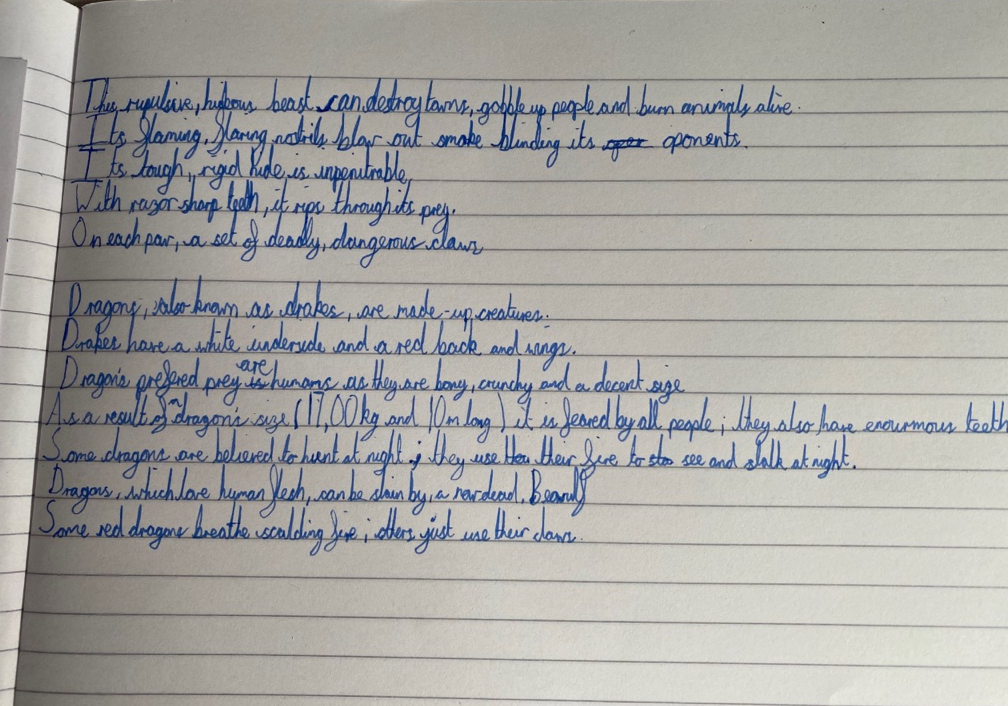 This repulsive, hideous beast can destroy towns, gobble up people and burn animals alive.
Its flaming, flaring nostrils blow out smoke blinding its oponents.
Its tough, rigid hide, is inpenitrable,
With razor sharp teeth, it rips through its prey.
On each paw, a set of deadly, dangerous claws
Dragons, also known as drakes, are made-up creatures.
Drakes have a white underside and a red back and wings.
Dragon's prefered prey are humans as they are bony, crunchy and a decent size
As a result of a dragon's size (17,00kg and 10m long) it is feared by all people; they also have enourmous teeth
Some dragons are believed to hunt at night; they use their fire to see and stalk at night.
Dragons, which love human flesh, can be slain by, a now dead, Beowulf
Some red dragons breathe scalding fire; others just use their claws.